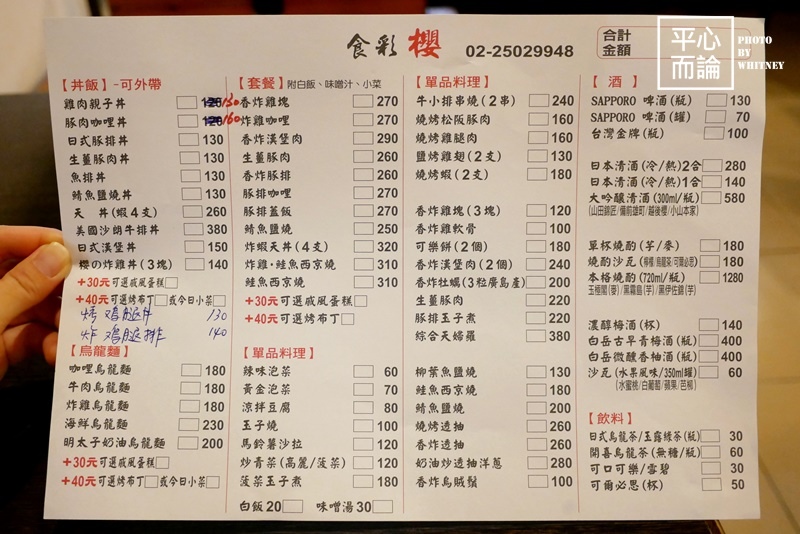 食彩 櫻 02-25029948
合計
金額
平心
而論
PHOTO
BY
WHITNEY
【丼飯】-可外帶
雞肉親子丼 120 130
豚肉咖哩丼 120 160
日式豚排丼 130
生薑豚肉丼 130
魚排丼 130
鯖魚鹽燒丼 130
天 丼(蝦4支) 260
美國沙朗牛排丼 380
日式漢堡丼 150
櫻の炸雞丼(3塊) 140
+30元可選戚風蛋糕
+40元可選烤布丁 或今日小菜
烤雞腿丼 130
炸雞腿排 140
【烏龍麵】
咖哩烏龍麵 180
牛肉烏龍麵 180
炸雞烏龍麵 180
海鮮烏龍麵 230
明太子奶油烏龍麵 200
+30元可選戚風蛋糕
+40元可選烤布丁 或今日小菜
【套餐】附白飯、味噌汁、小菜
香炸雞塊 270
炸雞咖哩 270
香炸漢堡肉 290
生薑豚肉 260
香炸豚排 260
豚排咖哩 270
豚排蓋飯 270
鯖魚鹽燒 250
炸蝦天丼(4支) 320
炸雞·鮭魚西京燒 310
鮭魚西京燒 310
+30元可選戚風蛋糕
+40元可選烤布丁
【單品料理】
辣味泡菜 60
黃金泡菜 70
涼拌豆腐 80
玉子燒 100
馬鈴薯沙拉 120
炒青菜(高麗/菠菜) 120
菠菜玉子燒 180
白飯20 味噌湯30
【單品料理】
牛小排串燒(2串) 240
燒烤松阪豚肉 160
燒烤雞腿肉 160
鹽烤雞翅(2支) 130
燒烤蝦(2支) 180
香炸雞塊(3塊) 120
香炸雞軟骨 100
可樂餅(2個) 180
香炸漢堡肉(2個) 240
香炸牡蠣(3粒廣島產) 200
生薑豚肉 220
豚排玉子煮 220
綜合天婦羅 380
柳葉魚鹽燒 130
鮭魚西京燒 180
鯖魚鹽燒 200
燒烤透抽 260
香炸透抽 260
奶油炒透抽洋蔥 280
香炸烏賊鬚 100
【酒】
SAPPORO 啤酒(瓶) 130
SAPPORO 啤酒(罐) 70
台灣金牌(瓶) 100
日本清酒(冷/熱)2合 280
日本清酒(冷/熱)1合 140
大吟釀清酒(300ml/瓶) 580
(山田錦匠/備前雄町/越後櫻/小山本家)
單杯燒酎(芋/麥) 180
燒酎沙瓦(檸檬/烏龍茶/可爾必思) 180
本格燒酎(720ml/瓶) 1280
玉極閣(麥)/黑霧島(芋)/黑伊佐錦(芋)
濃醇梅酒(杯) 140
白岳古早青梅酒(瓶) 400
白岳微釀香柚酒(瓶) 400
沙瓦(水果風味/350ml罐) 60
(水蜜桃/白葡萄/蘋果/芭柳)
【飲料】
日式烏龍茶/玉露綠茶(瓶) 30
開喜烏龍茶(無糖/瓶) 60
可口可樂/雪碧 30
可爾必思(杯) 50